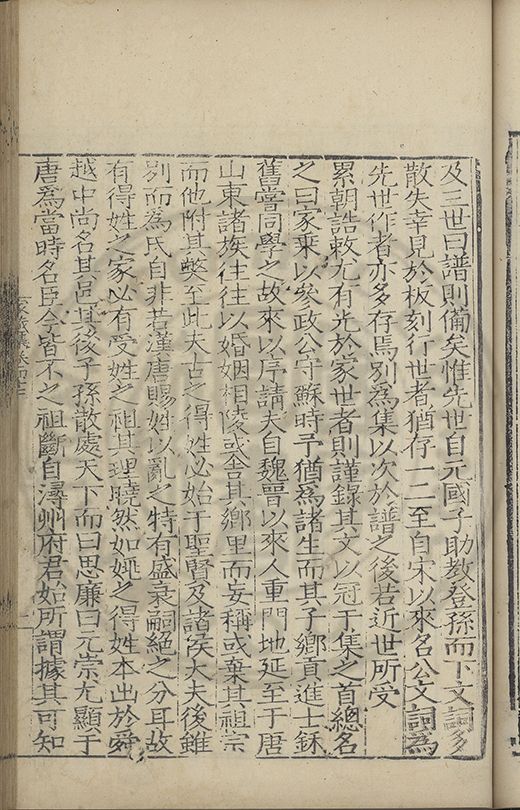 及三世曰譜則備矣惟先世自元國子助教登孫而下文詞多
散失幸見於板刻行世者猶存一二至自宋以來名公文詞為
先世作者亦多存焉別為集以次於譜之後若近世所受
累朝誥敕尤有光於家世者則謹錄其文以冠于集之首總名
之曰家乘以參政公守蘇時予猶為諸生而其子鄉貢進士鉌
舊嘗同學之故來以序請夫自魏晉以來人重門地延至于唐
山東諸族往往以婚姻相陵或舍其鄉里而妄稱或棄其祖宗
而他附其弊至此夫古之得姓必始于聖賢及諸侯大夫後雖
別而為氏自非若漢唐賜姓以亂之特有盛衰嗣絕之分耳故
有得姓之家必有受姓之祖其理曉然如姚之得姓本出於舜
越中尚名其邑其後子孫散處天下而曰思廉曰元崇尤顯于
唐為當時名臣今皆不之祖斷自潯州府君始所謂據其可知